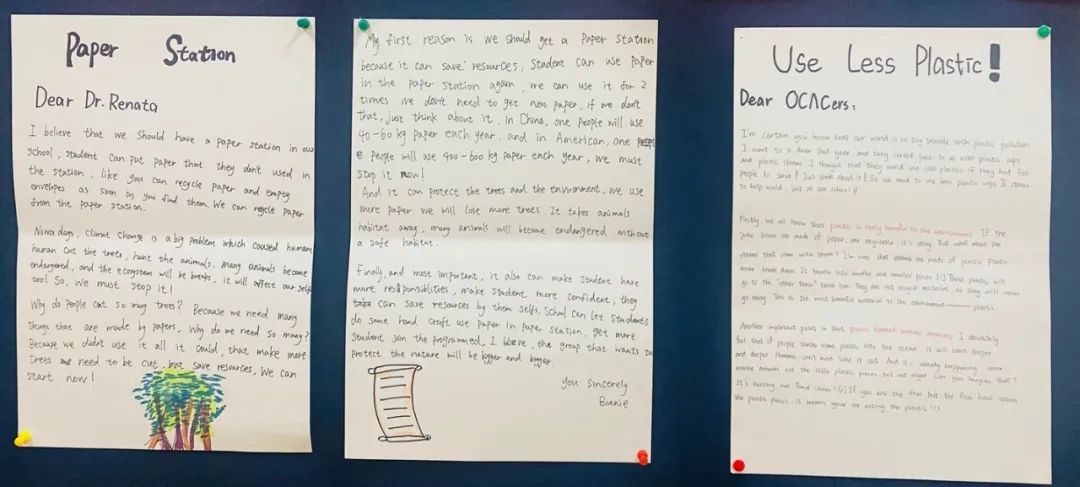 Paper Station
Dear Dr. Renata
I believe that we should have a paper station in our
school, student can put paper that they don't used in
the station, like you can recycle paper and empty
envelopes as soon as you find them. We can recycle paper
from the paper station.
Nowadays, Climat Change is a big problem which caused human,
human cut the trees, hunt the animals. Many animals become
endangered, and the ecosystem will be breaks, it will affect our self
too! So, we must stop it!
Why do people cut so many trees? Because we need many
things that are made by papers. Why do we need so many?
Because we didn't use it all it could, that make more
trees need to be cut, but save resources, we can
start now!
My first reason is we should get a Paper Station
because it can save resources, Student can use paper
in the paper station again, we can use it for 2
times, we don't need to get new paper, if we don't
that, just think about it. In China, one people will use
40-60 kg paper each year, and in American, one
people will use 400-600 kg paper each year, we must
stop it now!
And it can protect the trees and the environment, we use
more paper we will lose more trees. It takes animals
habitat away, many animals will become endangered without
a safe habitat.
Finally, and most important, it also can make student have
more responsibilities, make student more confident, they
can save resources by them selfs. School can let students
do some hand craft use paper in paper station, get more
student join the programmed, I belive, the group that wants to
protect the nature will be biger and biger.
You sincerely
Bonnie
Use Less Plastic!
Dear OCACers:
I'm certain you know that our world is in big trouble with plastic pollution
I went to a diner last year and they served juice to us with plastic cups
and plastic straws. I thought that they would use less plastics if they had less
people to serve! Just think about it! So we need to use less plastic cups & straws
to help world, just at our school!
Firstly, we all know that plastic is really harmful to the environment. If the
juice boxes are made of paper, are recyclable, it's okay. But what about the
straws that come with them? I'm sure that straws are made of plastic. Plastic
never break down. It breaks into smaller and smaller pieces. These plastic will
go to the "other trash" trash bin. They are not recycle material, so they will never
go away. This is the most harmful material to the environment — plastic.
Another important point is that plastic harmed marine animals. I absolutely
feel that if people throw some plastic into the ocean, it will reach deeper
and deeper. Humans can't even take it out. And it's already happening, some
marine animals eat the little plastic pieces, but not algae. Can you imagine that?
It's hurting our food chain! If you ate the fish but the fish have eaten
the plastic pieces, it means you're eating the plastic!!!